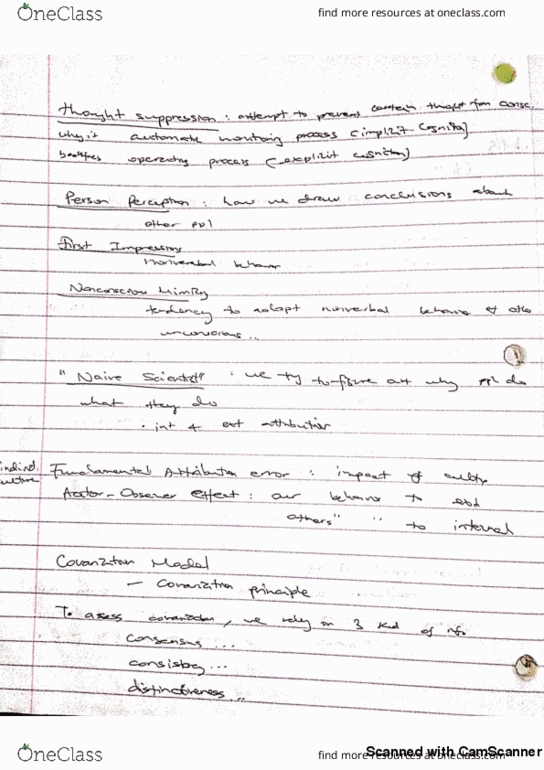 OneClass
find more resources at oneclass.com
thought suppression : attempt to prevent certain thought from consc.
why it automatic monitoring process (implicit cognition)
operating process (explicit cognition)
Person Perception : how we draw conclusions about
other ppl
First Impressions
nonverbal behavior
Nonconscious Mimicry
tendency to adopt nonverbal behavior of oths
unconscious..
"Naive Scientist" : we try to figure out why ppl do
what they do
· int & ext attribution
Fundamental Attribution error : impact of
Actor-Observer effect : our behavior to
others" " to internal
Covariation Model
- Covariation principle
To assess covariation, we rely on 3 kind of info
consensus ...
consistency ...
distinctiveness ..
OneClass
find more resources at oneclass.com
Scanned with CamScanner